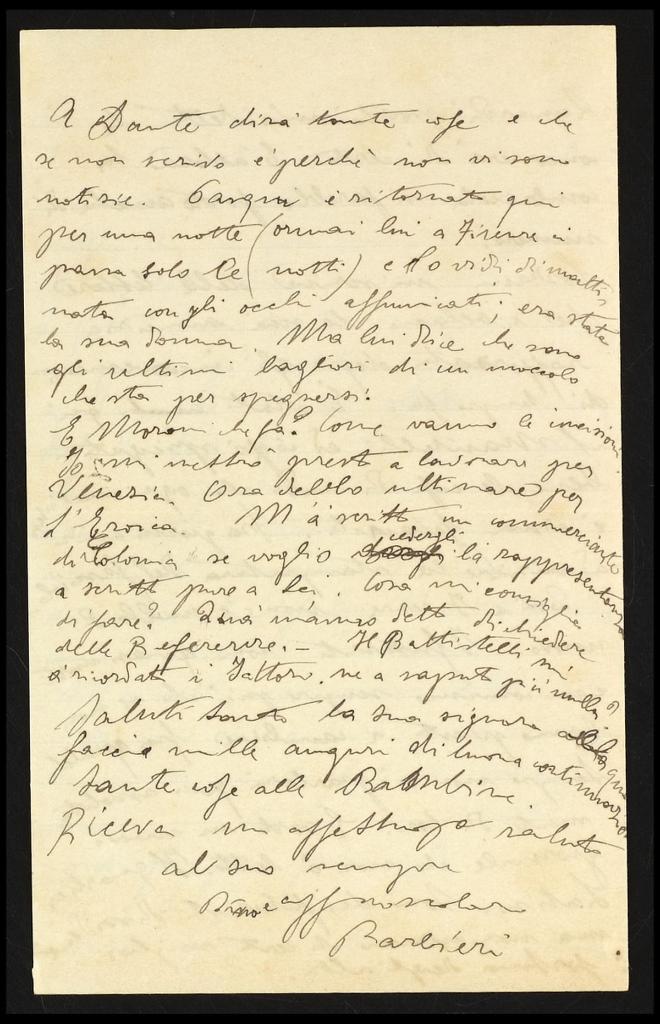 A Dante dirà tante cose e che
se non scrivo è perchè non vi sono
notizie. è ritornato qui
per una notte (ormai lui a Firenze ci
passa solo le notti) e lo vidi di matti
nata con gli occhi affumicati; era stata
la sua donna. Ma lui dice che sono
gli ultimi bagliori di un moccolo
che sta per spegnersi.
E Moroni che fa? Come vanno le incisioni
Io mi metterò presto a lavorare per
Venezia. Ora debbo ultimare per
L'Eroica. M'à scritto un commerciante
di Colonia se voglio cedergli la rappresentanza
a scritto pure a Lei. Cosa mi consiglia
di fare? Quà m'anno detto di chiedere
delle Referenze.- Il Battistelli mi
à ricordato i Fattori. ne a saputo più nulla?
Saluti tanto la sua signora
faccia mille auguri di buona continuazione
tante cose alle Bambine.
Riceva un affettuoso saluto
al suo sempre
aff
Barbieri